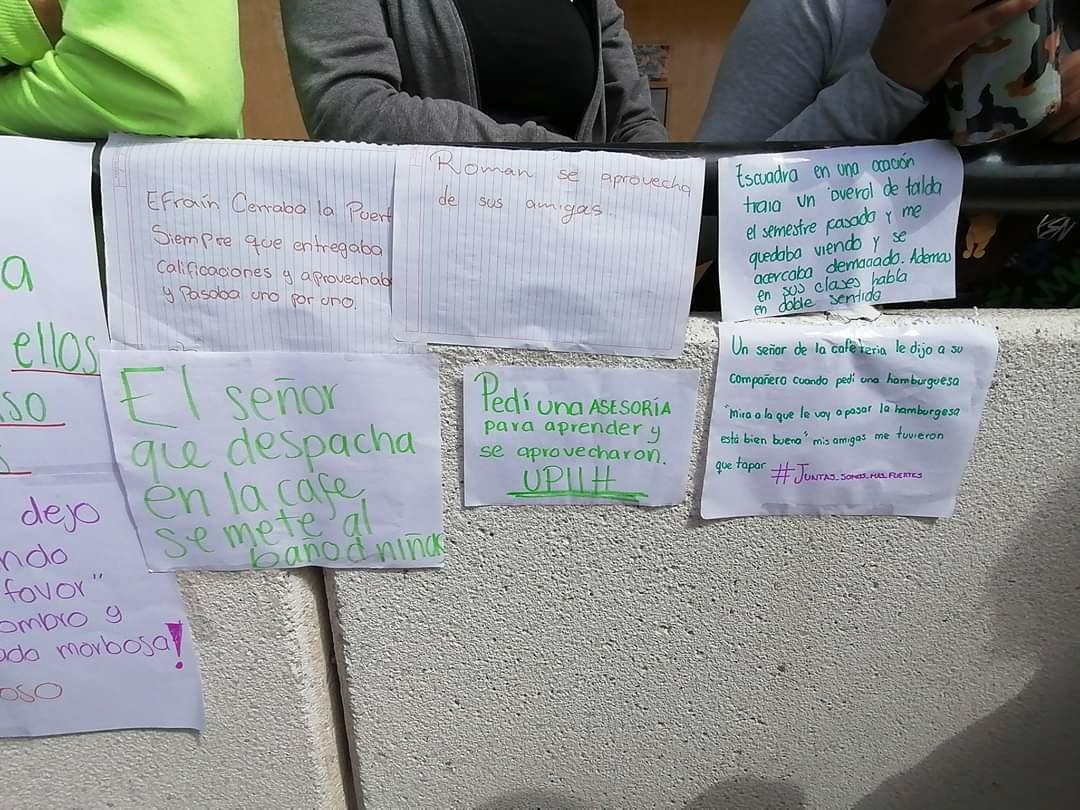 a
ellos
so
s
dejo
ndo
favor"
ombro y
ada morbosa!
oso
Efraín Cerraba la Puert
Siempre que entregaba
Calificaciones y aprovechab
y Pasaba uno por uno.
Roman se aprovecha
de sus amigas.
Escuadra en una ocación
traia un overol de falda
el semestre pasado y me
quedaba viendo y se
acercaba demaciado. Ademas
en sus clases habla
en doble sentido
El señor
que despacha
en la cafe,
se mete al
baño d niñas
Pedí una ASESORÍA
para aprender y
se aprovecharon.
UPIIH
Un señor de la cafeteria le dijo a su
compañero cuando pedí una hamburguesa
"Mira a la que le voy a pasar la hamburgesa
está bien buena" mis amigas me tuvieron
que tapar #JUNTAS_SOMOS_MAS_FUERTES